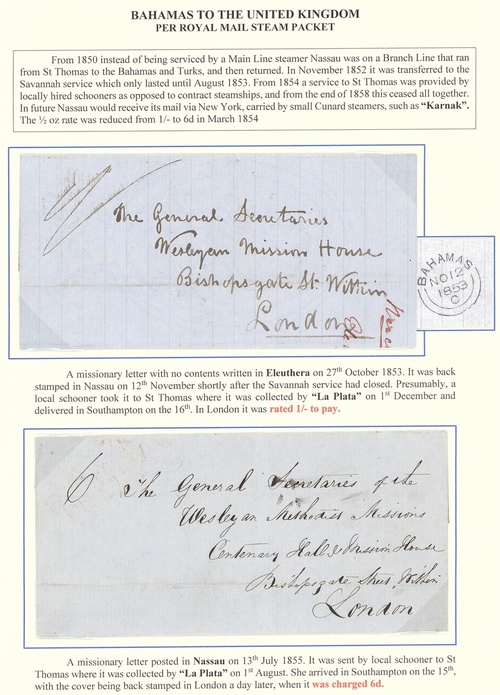 BAHAMAS TO THE UNITED KINGDOM
PER ROYAL MAIL STEAM PACKET
From 1850 instead of being serviced by a Main Line steamer Nassau was on a Branch Line that ran
from St Thomas to the Bahamas and Turks, and then returned. In November 1852 it was transferred to the
Savannah service which only lasted until August 1853. From 1854 a service to St Thomas was provided by
locally hired schooners as opposed to contract steamships, and from the end of 1858 this ceased all together.
In future Nassau would receive its mail via New York, carried by small Cunard steamers, such as “Karnak”.
The ½ oz rate was reduced from 1/- to 6d in March 1854
The General Secretaries
Wesleyan Mission House
Bishopsgate St. Within
London
BAHAMAS
NO 12
1853
C
A missionary letter with no contents written in Eleuthera on 27th October 1853. It was back
stamped in Nassau on 12th November shortly after the Savannah service had closed. Presumably, a
local schooner took it to St Thomas where it was collected by “La Plata” on 1st December and
delivered in Southampton on the 16th. In London it was rated 1/- to pay.
6 The General Secretaries of the
Wesleyan Methodist Missions
Centenary Hall & Mission House
Bishopsgate Street Within
London
A missionary letter posted in Nassau on 13th July 1855. It was sent by local schooner to St
Thomas where it was collected by “La Plata” on 1st August. She arrived in Southampton on the 15th,
with the cover being back stamped in London a day later, when it was charged 6d.